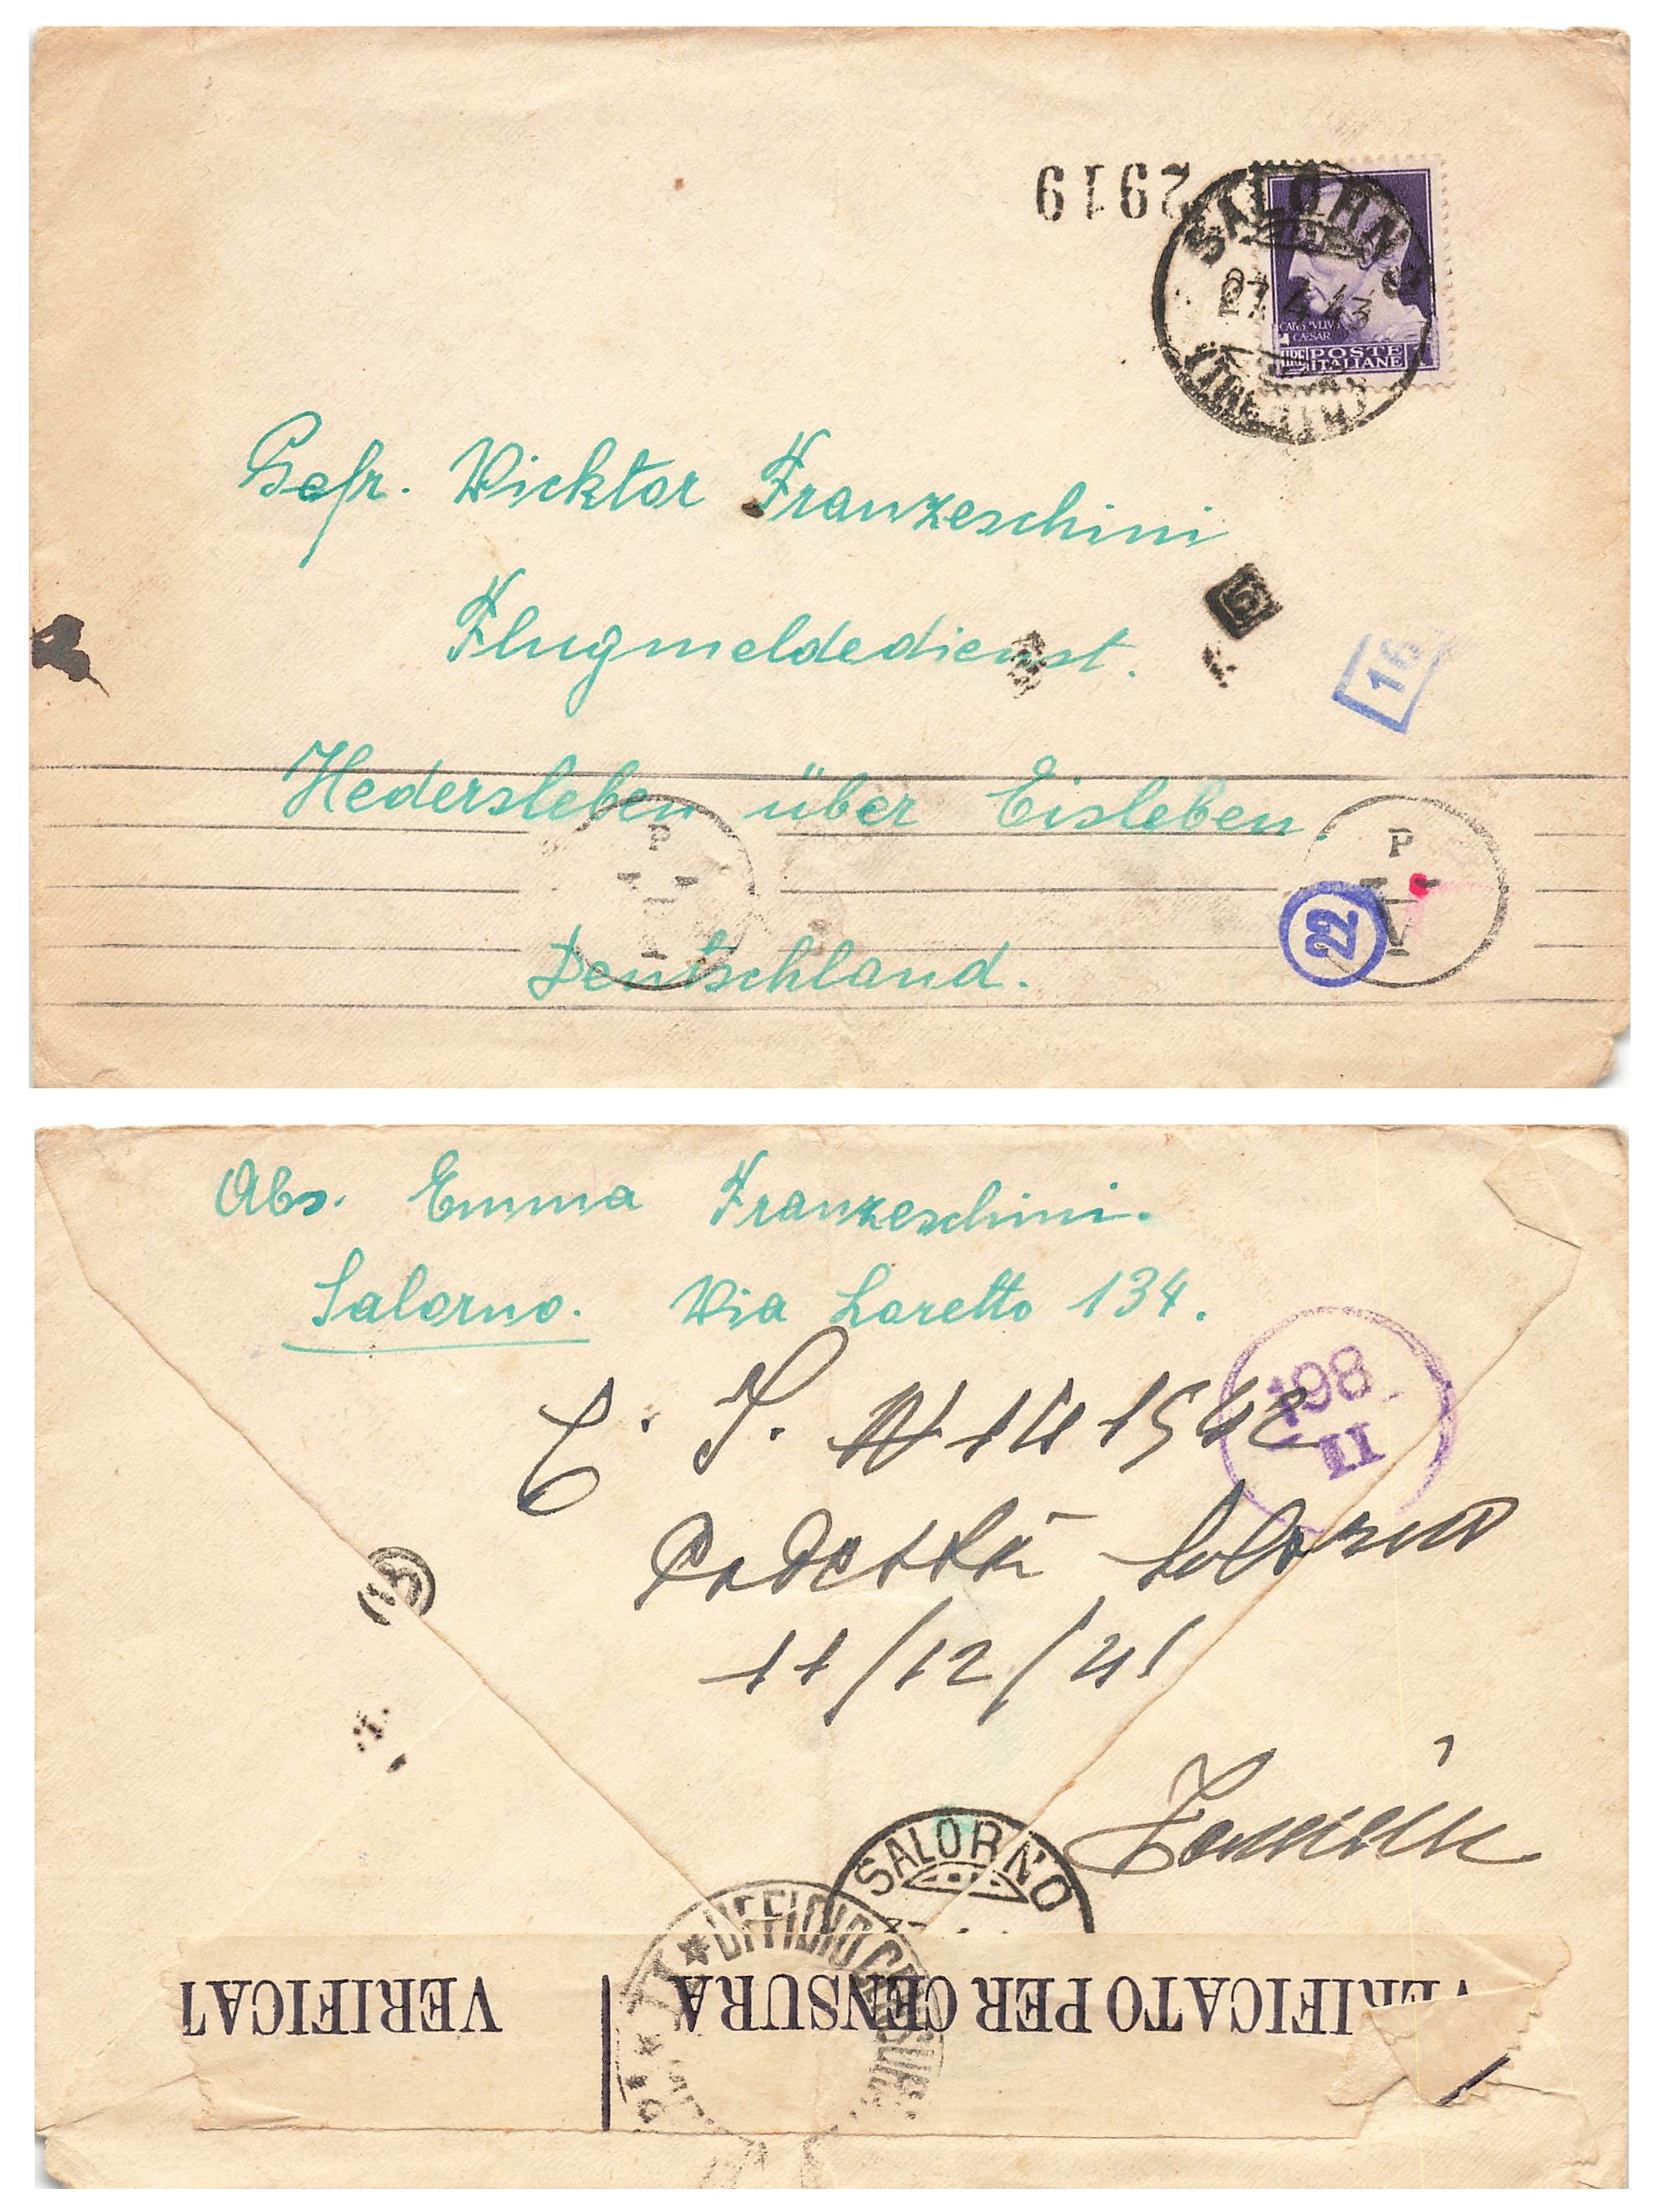 2919
SALORNO
27.4.43
(TRENTO)
CAIVS IVLIVS
CAESAR
LIRE 1
POSTE
ITALIANE
Gefr. Vicktor Franzeschini
Flugmeldedienst.
16
Hedersleben über Eisleben.
P P
V
22
Deutschland.
Abs. Emma Franzeschini.
Salorno. Via Loretto 134.
498
II
C. I. N 141542
Podestà Salorno
11/12/41
SALORNO
UFFICIO CENSURA
VERIFICATO PER CENSURA
VERIFICAT